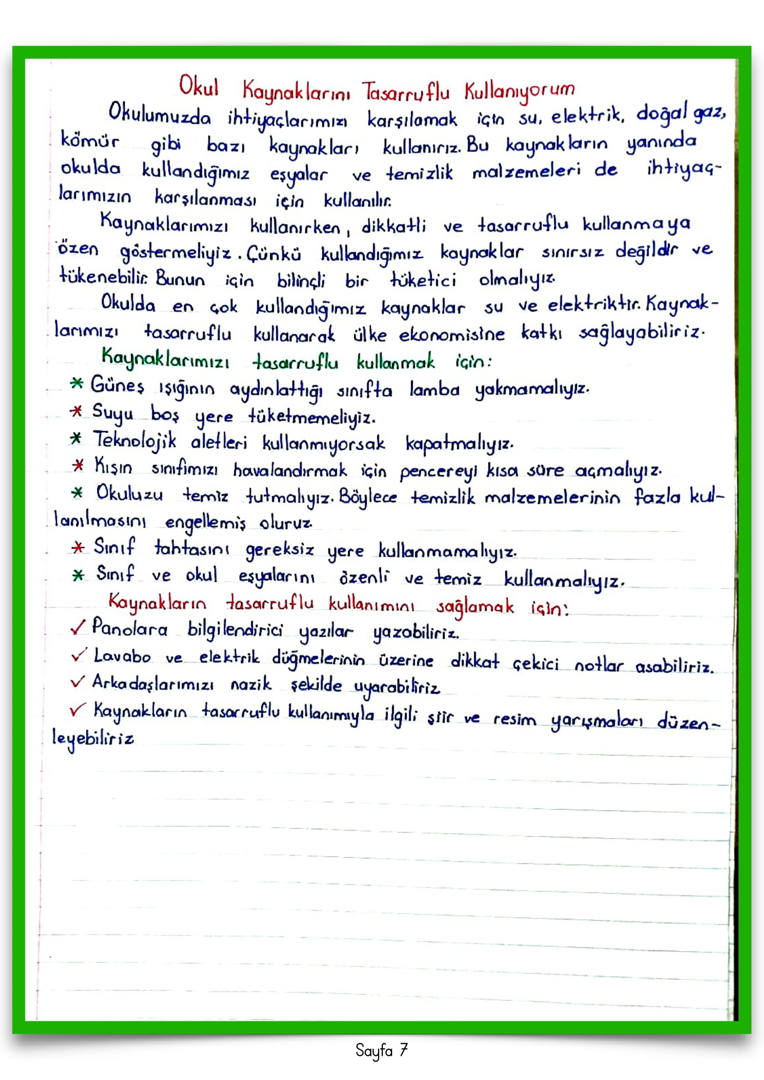 Okul Kaynaklarını Tasarruflu Kullanıyorum
Okulumuzda ihtiyaçlarımızı karşılamak için su, elektrik, doğal gaz,
kömür gibi bazı kaynakları kullanırız. Bu kaynakların yanında
okulda kullandığımız eşyalar ve temizlik malzemeleri de ihtiyaç-
larımızın karşılanması için kullanılır.
Kaynaklarımızı kullanırken, dikkatli ve tasarruflu kullanmaya
özen göstermeliyiz. Çünkü kullandığımız kaynaklar sınırsız değildir ve
tükenebilir. Bunun için bilinçli bir tüketici olmalıyız.
Okulda en çok kullandığımız kaynaklar su ve elektriktir. Kaynak-
larımızı tasarruflu kullanarak ülke ekonomisine katkı sağlayabiliriz.
Kaynaklarımızı tasarruflu kullanmak için:
* Güneş ışığının aydınlattığı sınıfta lamba yakmamalıyız.
* Suyu boş yere tüketmemeliyiz.
* Teknolojik aletleri kullanmıyorsak kapatmalıyız.
* Kışın sınıfımızı havalandırmak için pencereyi kısa süre açmalıyız.
* Okuluzu temiz tutmalıyız. Böylece temizlik malzemelerinin fazla kul-
lanılmasını engellemiş oluruz.
* Sınıf tahtasını gereksiz yere kullanmamalıyız.
* Sınıf ve okul eşyalarını özenli ve temiz kullanmalıyız.
Kaynakların tasarruflu kullanımını sağlamak için:
✓ Panolara bilgilendirici yazılar yazabiliriz.
✓ Lavabo ve elektrik düğmelerinin üzerine dikkat çekici notlar asabiliriz.
✓ Arkadaşlarımızı nazik şekilde uyarabiliriz.
✓ Kaynakların tasarruflu kullanımıyla ilgili şiir ve resim yarışmaları düzen-
leyebiliriz
Sayfa 7